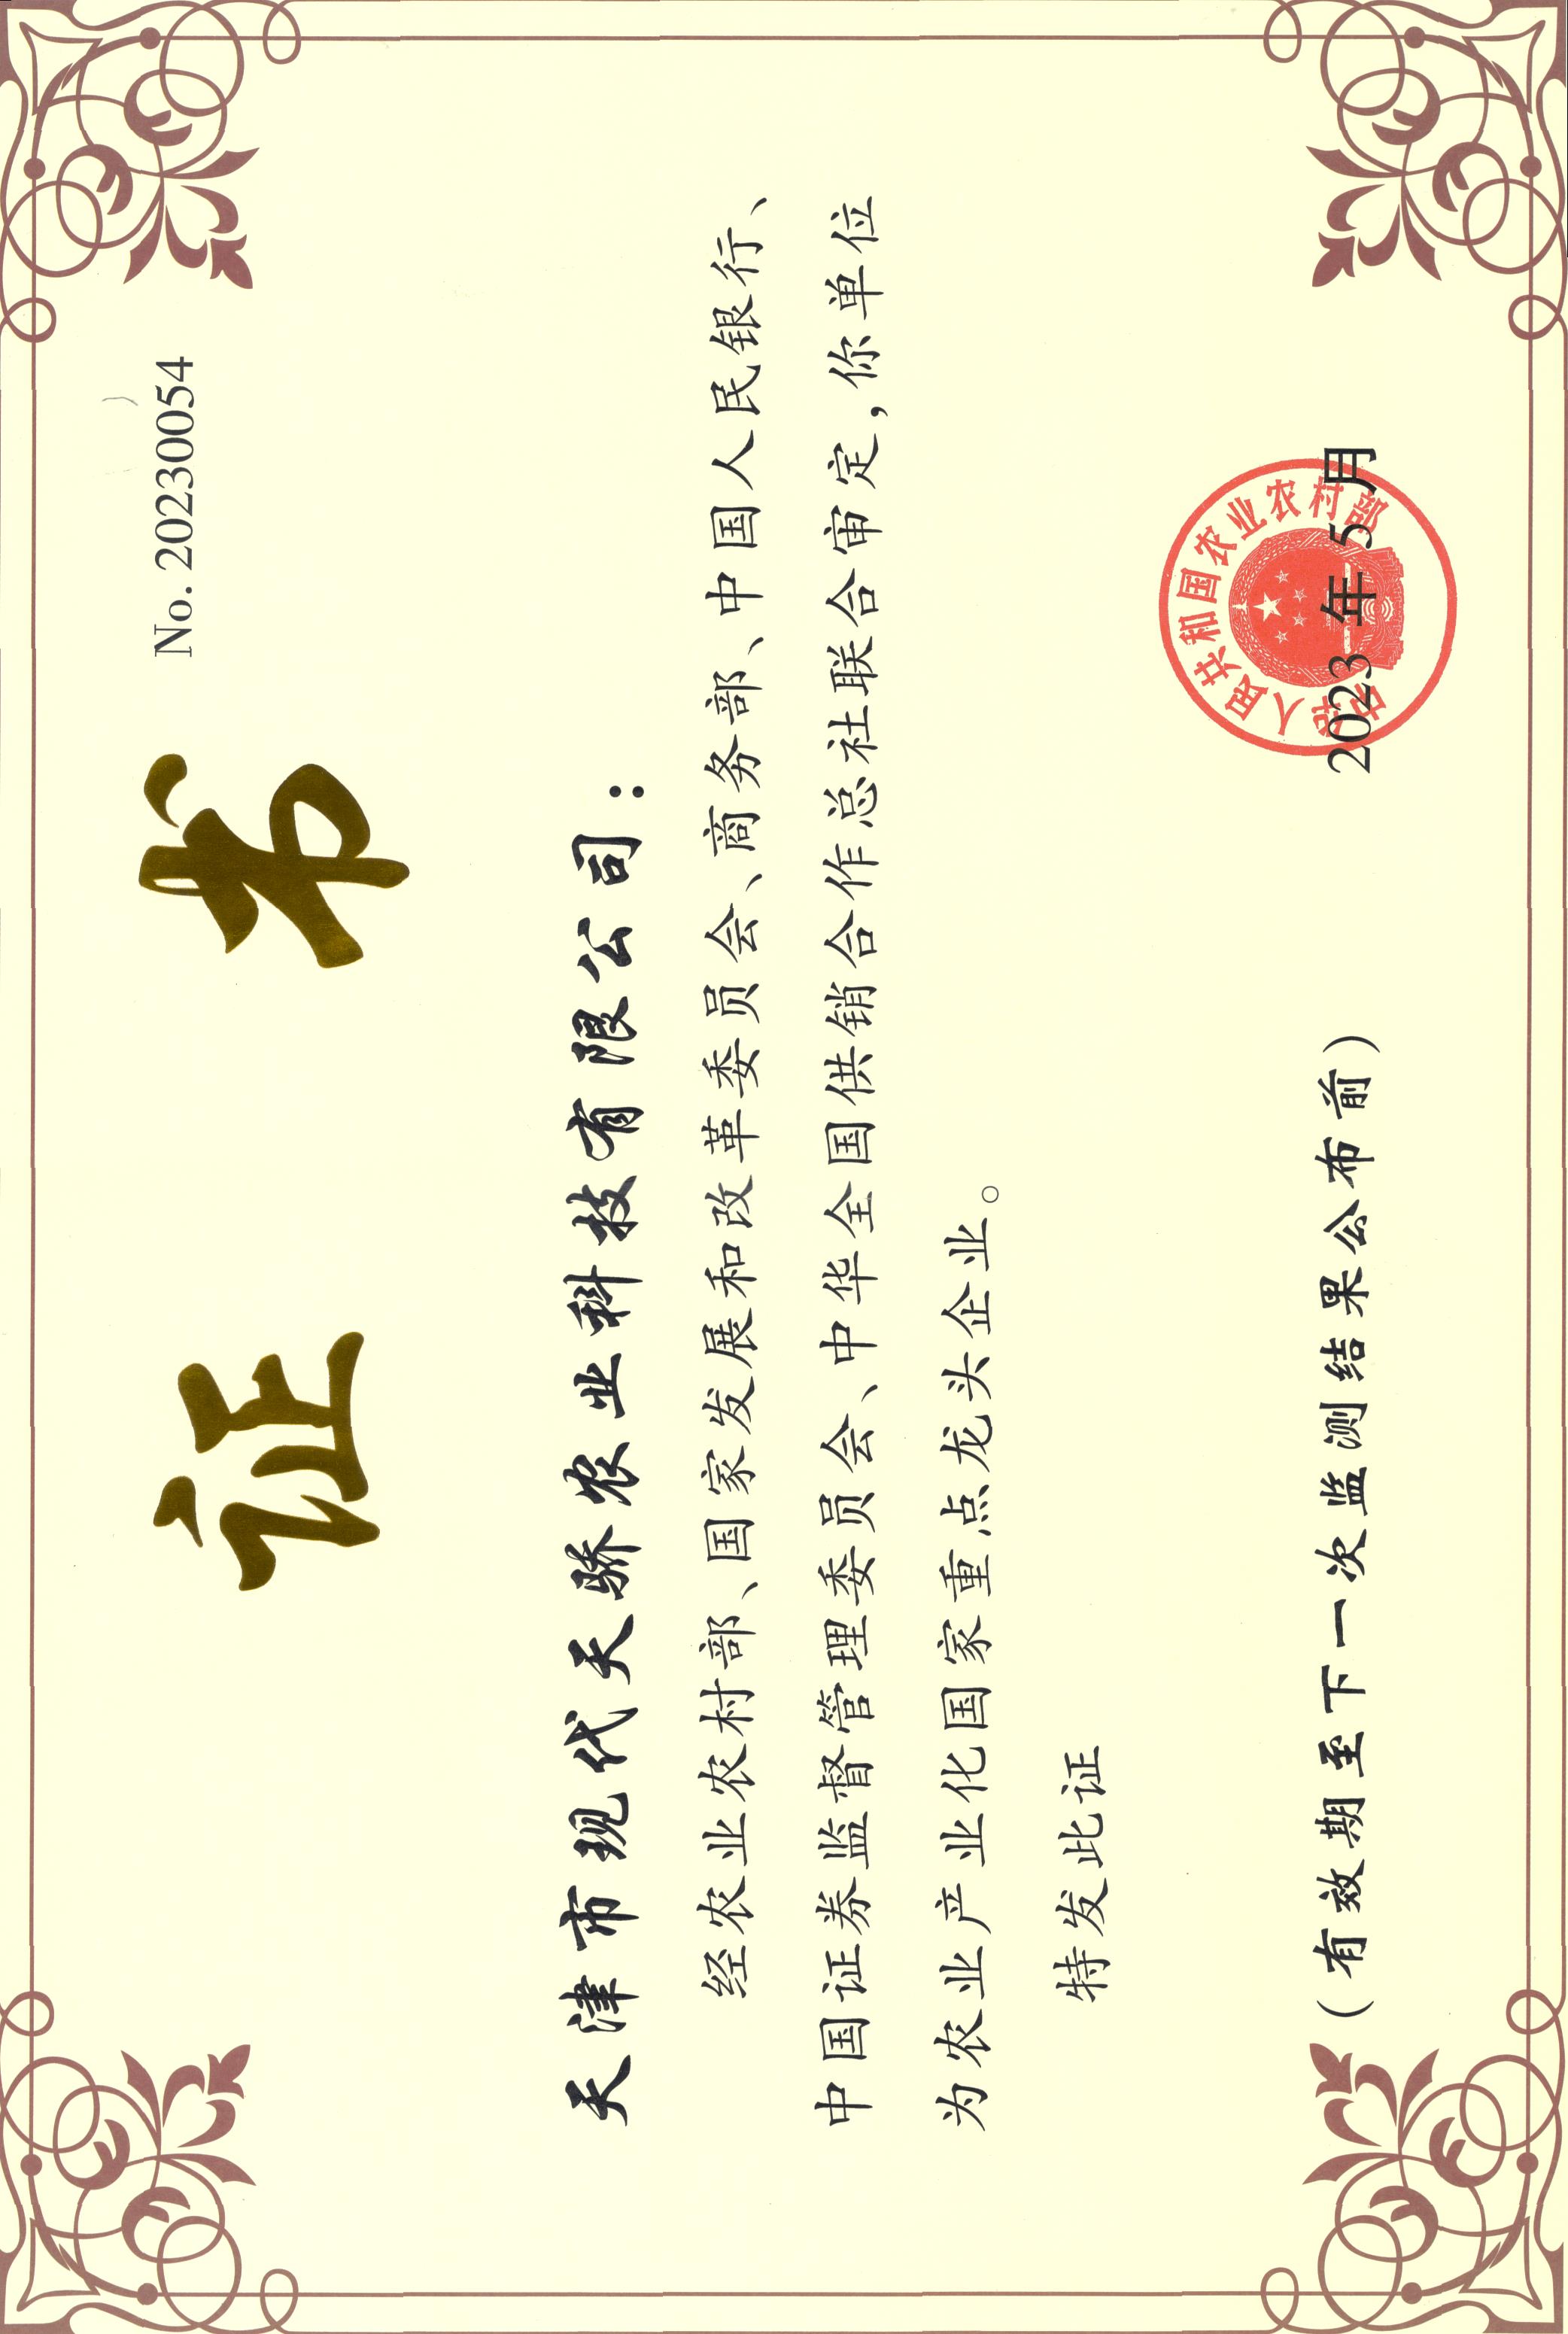 No. 20230054
证书
天津市现代天骄农业科技有限公司：
经农业农村部、国家发展和改革委员会、商务部、中国人民银行、
中国证券监督管理委员会、中华全国供销合作总社联合审定，你单位
为农业产业化国家重点龙头企业。
特发此证
中华人民共和国农业农村部
2023年5月
（有效期至下一次监测结果公布前）